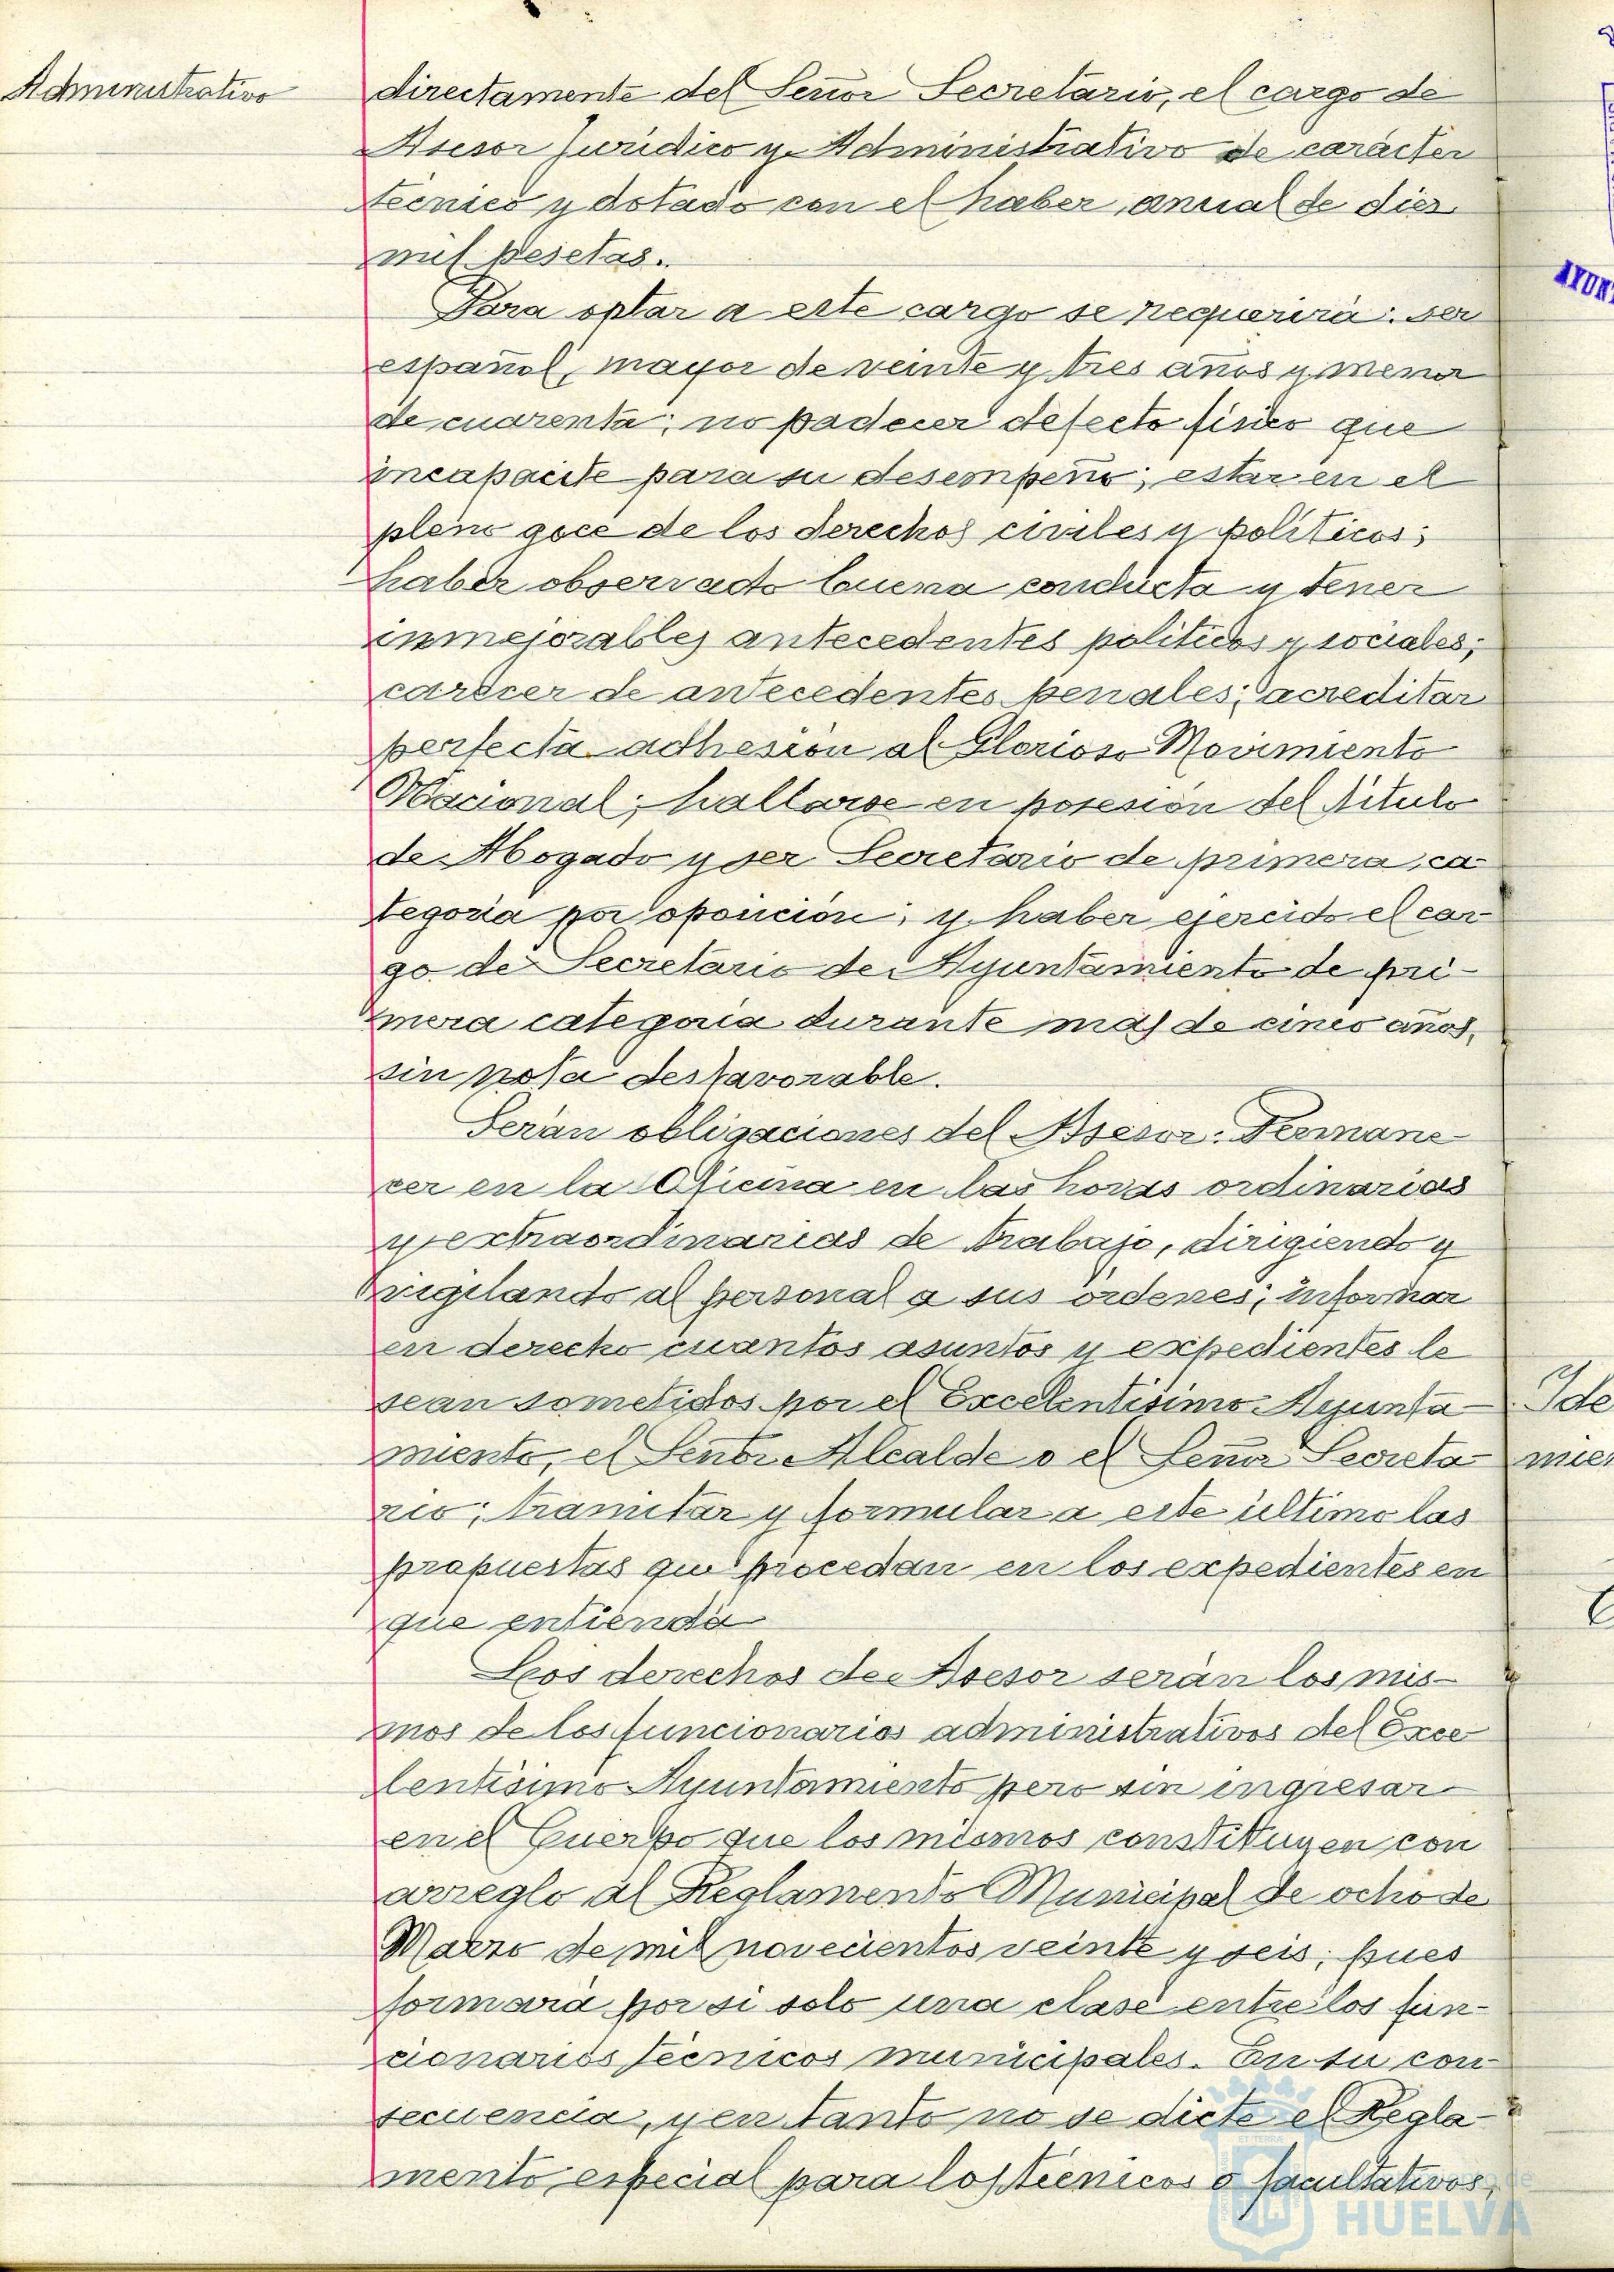 Administrativo
directamente del Señor Secretario, el cargo de
Asesor Jurídico y Administrativo de carácter
técnico y dotado con el haber anual de diez
mil pesetas.
Para optar a este cargo se requerirá: ser
español, mayor de veinte y tres años y menor
de cuarenta; no padecer defecto físico que
incapacite para su desempeño; estar en el
pleno goce de los derechos civiles y políticos;
haber observado buena conducta y tener
inmejorables antecedentes políticos y sociales;
carecer de antecedentes penales; acreditar
perfecta adhesión al Glorioso Movimiento
Nacional; hallarse en posesión del Título
de Abogado y ser Secretario de primera ca-
tegoría por oposición; y haber ejercido el car-
go de Secretario de Ayuntamiento de pri-
mera categoría durante más de cinco años,
sin nota desfavorable.
Serán obligaciones del Asesor: Permane-
cer en la Oficina en las horas ordinarias
y extraordinarias de trabajo, dirigiendo y
vigilando al personal a sus órdenes; informar
en derecho cuantos asuntos y expedientes le
sean sometidos por el Excelentísimo Ayunta-
miento, el Señor Alcalde o el Señor Secreta-
rio; tramitar y formular a este último las
propuestas que procedan en los expedientes en
que entienda
Los derechos del Asesor serán los mis-
mos de los funcionarios administrativos del Exce-
lentísimo Ayuntamiento pero sin ingresar
en el Cuerpo que los mismos constituyen con
arreglo al Reglamento Municipal de ocho de
Marzo de mil novecientos veinte y seis; pues
formará por si solo una clase entre los fun-
cionarios técnicos municipales. En su con-
secuencia, y en tanto no se dicte el Regla-
mento especial para los técnicos o facultativos,
AYUN
Ide
mie
HUELVA